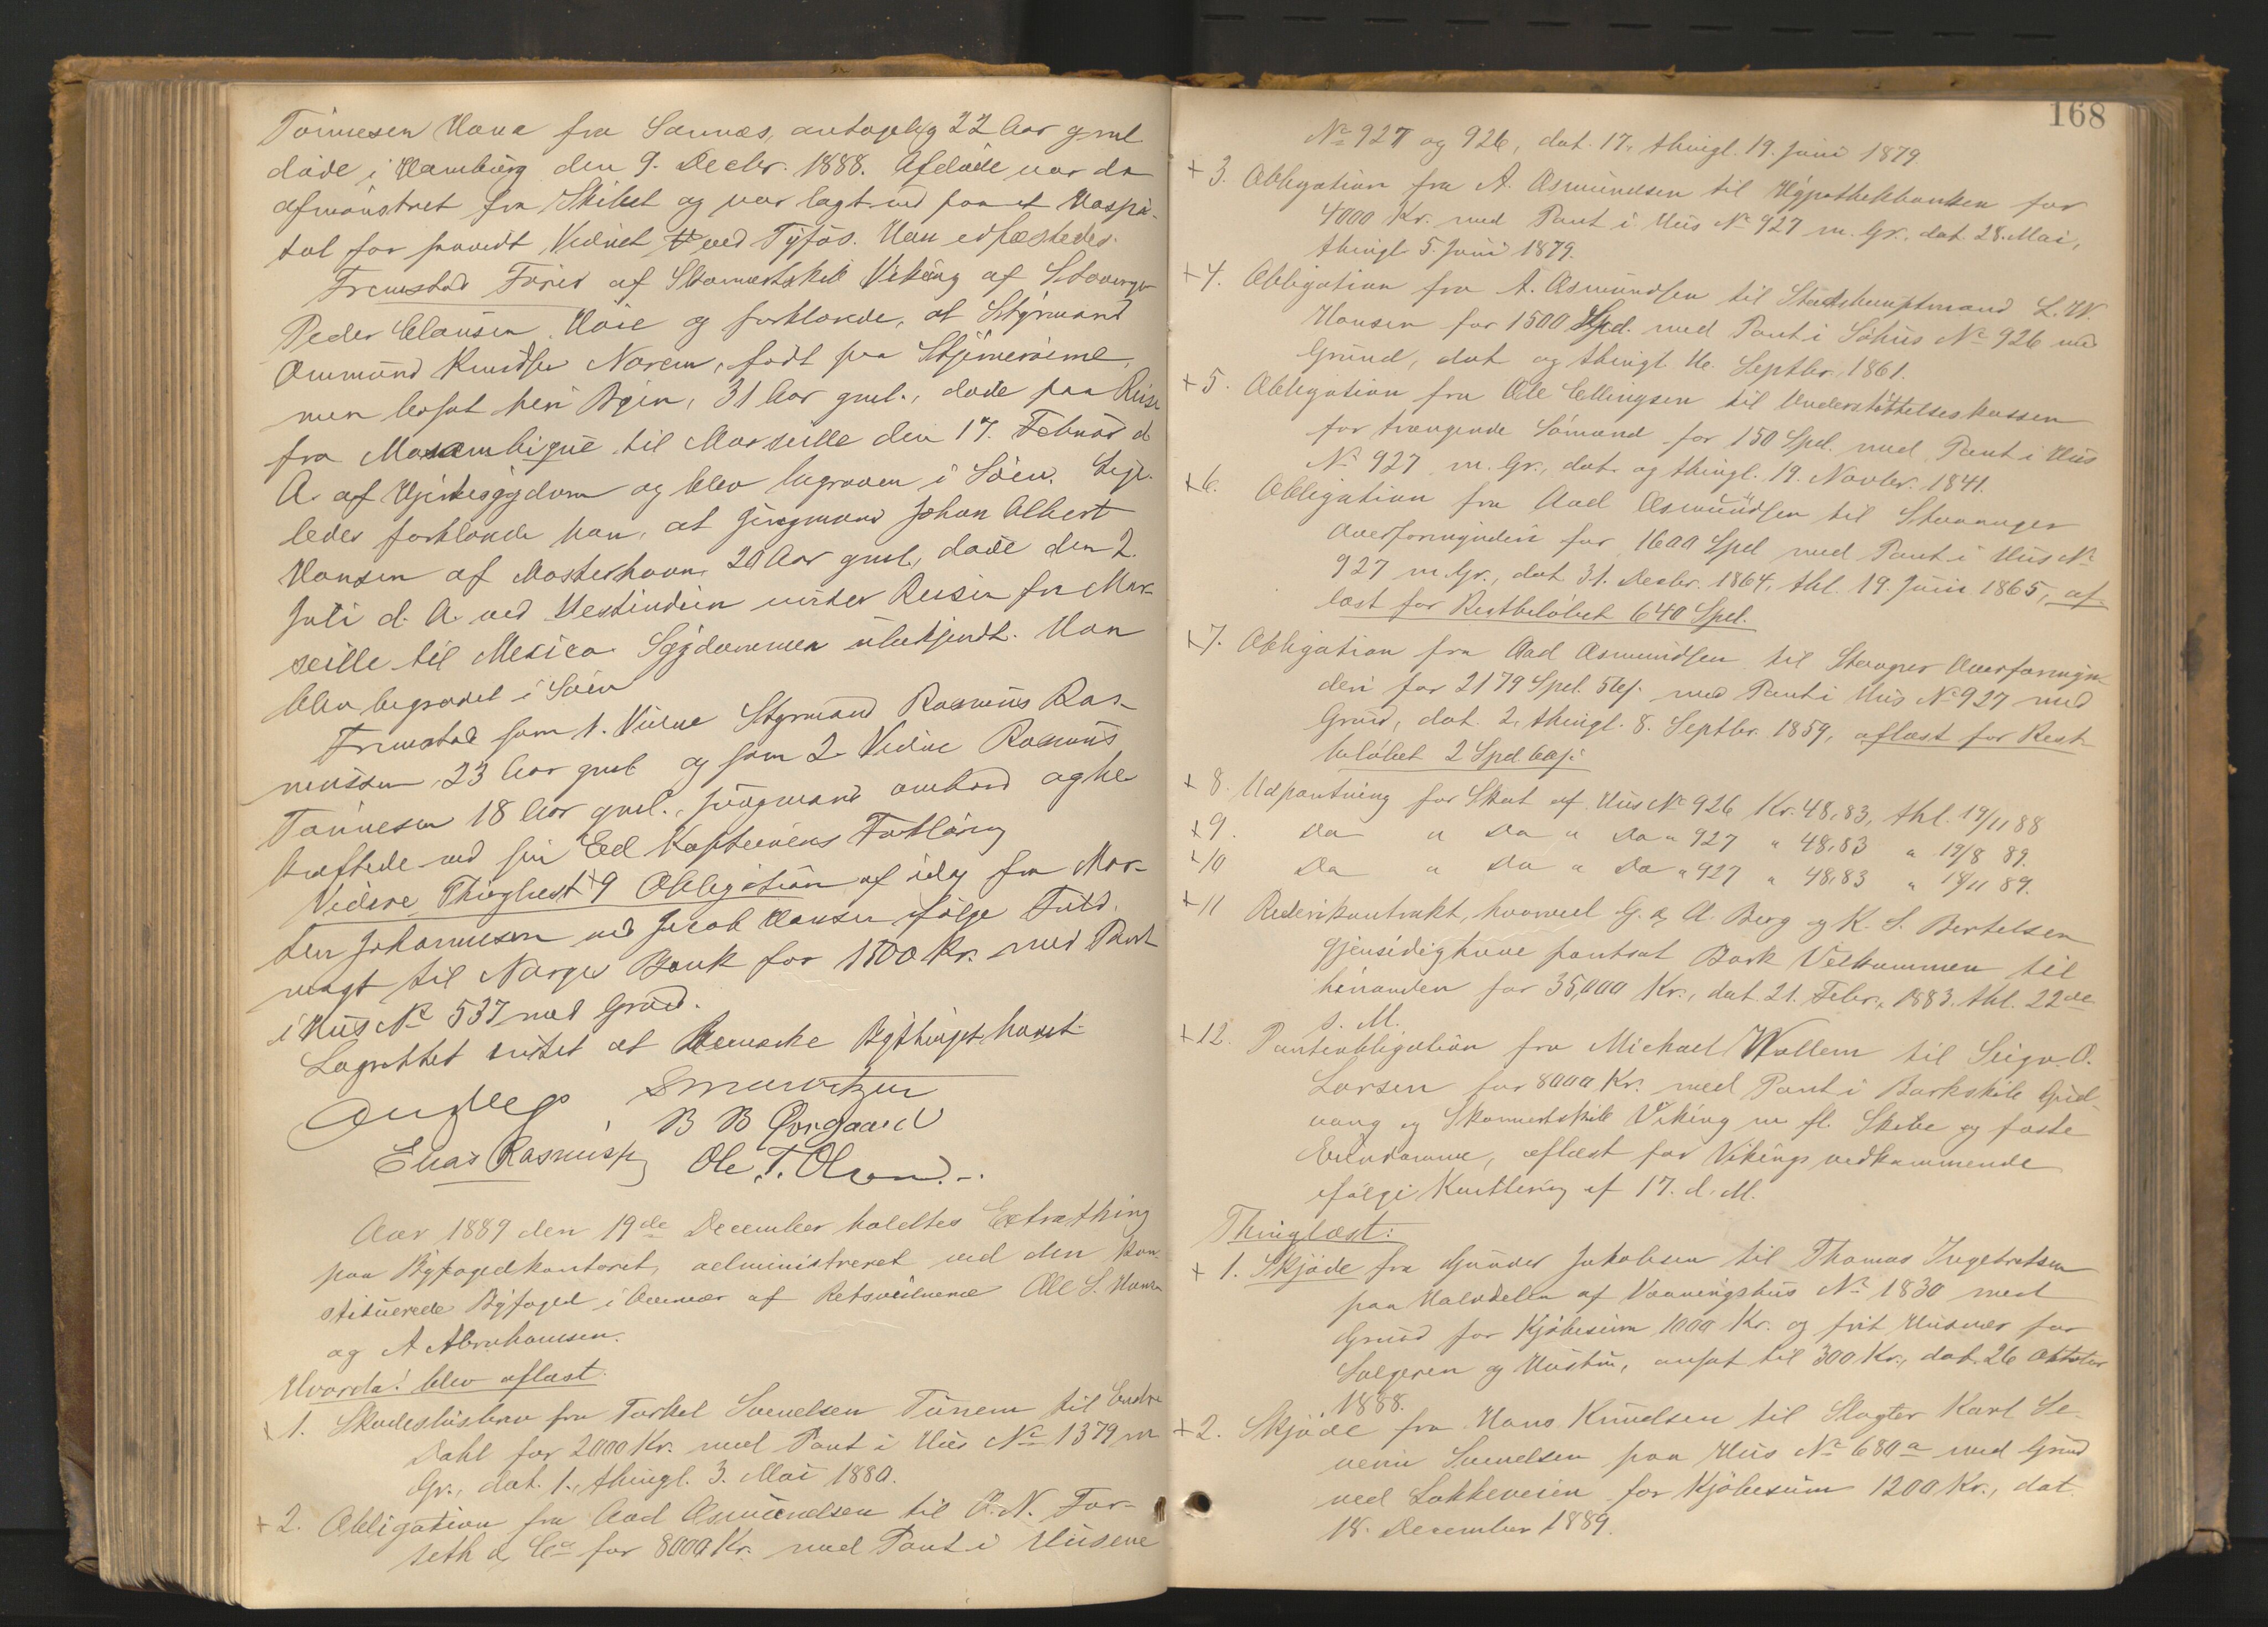 Tönnesen Hana fra Sannæs, antagelig 22 Aar gml
döde i Hamburg den 9. Decbr. 1888. Afdöde var da
afmönstret fra Skibet og var lagt ind paa et Hospi-
tal for saavidt Vidnet ved Tyfus. Han edfæstedes.
Fremstod Förer af Skonnertskib Viking af Stavanger
Peder Clausen Höie og forklarede, at Styrmand
Ommund Knudsen Narem, födt paa
men bosat her i Byen, 31 Aar gml., döde paa Reise
fra Mosambique til Marseille den 17. Februar d.
A. af Hjertesygdom og blev begraven i Söen. Lige-
ledes forklarede han, at Jungmand Johan Albert
Hansen af Mosterhavn, 20 Aar gml., döde den 2.
Juli d. A. ved Vestindien under Reisen fra Mar-
seille til Mexico. Sygdommen ubekjendt. Han
blev begravet i Söen
Fremstod som 1. Vidne Styrmand Rasmus Ras-
mussen, 23 Aar gml og som 2. Vidne Rasmus
Tönnesen 18 Aar gml., Jungmand ombord og be
kræftede ved sin Ed Kapteinens Forklaring
Videre Thinglæst 9 Obligation af idag fra Mor-
ten Johannesen ved Jacob Hansen ifölge Fuld-
magt til Norges Bank for 1500 Kr. med Pant
i Hus No 537 med Grund.
Lagrettet vidnet at Bemeldte Bything holdt.
B BØrsgaard
Elias Rasmussen Ole T. Olsen.
Aar 1889 den 19de December holdtes Extrathing
paa Byfogedkontoret, administreret ved den kon-
stituerede Byfoged i Overvær af Retsvidnerne Ole S. Hansen
og A Abrahamsen.
Hvorda: blev aflæst
+ 1. Skadeslösbrev fra Torkel Svendsen Tunem til Endre
Dahl for 2000 Kr. med Pant i Hus No 1379 m
Gr., dat. 1., thingl. 3. Mai 1880.
+ 2. Obligation fra Aad Asmundsen til O. N. For-
seth & Co for 8000 Kr. med Pant i Husene
168
No 927 og 926, dat. 17. thingl. 19. Juni 1879
+ 3. Obligation fra A. Asmundsen til Hypothekbanken for
4000 Kr. med Pant i Hus No 927 m. Gr., dat. 28. Mai,
thingl 5. Juni 1879.
+ 4. Obligation fra A. Asmundsen til Stadshauptmand L. W.
Hansen for 1500 Spd. med Pant i Söhus No 926 med
Grund, dat og thingl. 16. Septbr. 1861.
+ 5. Obligation fra Ole Ellingsen til Understöttelseskassen
for trængende Sömænd for 150 Spd. med Pant i Hus
No 927 m. Gr., dat. og thingl. 19. Novbr. 1841.
+ 6. Obligation fra Aad Asmundsen til Stavanger
Overformynderi for 1600 Spd med Pant i Hus No
927 m. Gr., dat. 31. Decbr. 1864, thl. 19. Juni 1865, af-
læst for Restbelöbet 640 Spd.
+ 7. Obligation fra Aad Asmundsen til Stavanger Overformyn-
deri for 2179 Spd. med Pant i Hus No 927 med
Grund, dat. 2, thingl. 8. Septbr. 1859, aflæst for Rest-
belöbet 2 Spd.
+ 8. Udpantning for Skat af Hus No 926 Kr. 48,83, thl. 19/11 88
+ 9. Do " Do " Do " 927 " 48,83 " 19/8 89.
+ 10 Do " Do " Do " 927 " 48,83 " 18/11 89.
+ 11 Rederikontrakt, hvorved G. & A. Berg og K. S. Bertelsen
gjensidig have pantsat Bark Velkommen til
hinanden for 35,000 Kr., dat. 21. Febr., 1883. thl. 22de
s. M.
+ 12. Panteobligation fra Michael Wallem til Seign. O.
Larsen for 8000 Kr. med Pant i Barkskib Gud-
vang og Skonnertskib Viking m fl. Skibe og faste
Eiendomme, aflæst for Vikings vedkommende
ifölge Kvittering af 17. d. M.
Thinglæst:
+ 1. Skjöde fra Gunder Jakobsen til Thomas Ingebretsen
paa Halvdelen af Vaaningshus No 1830 med
Grund for Kjöbesum 1000 Kr. og frit Husvær for
Sælgeren og Hustru, ansat til 300 Kr., dat. 26 Oktober
1888.
+ 2. Skjöde fra Hans Knudsen til Slagter Karl Se-
verin Svendsen paa Hus No 680a med Grund
ved Lökkeveien for Kjöbesum 1200 Kr., dat
18. December 1889.